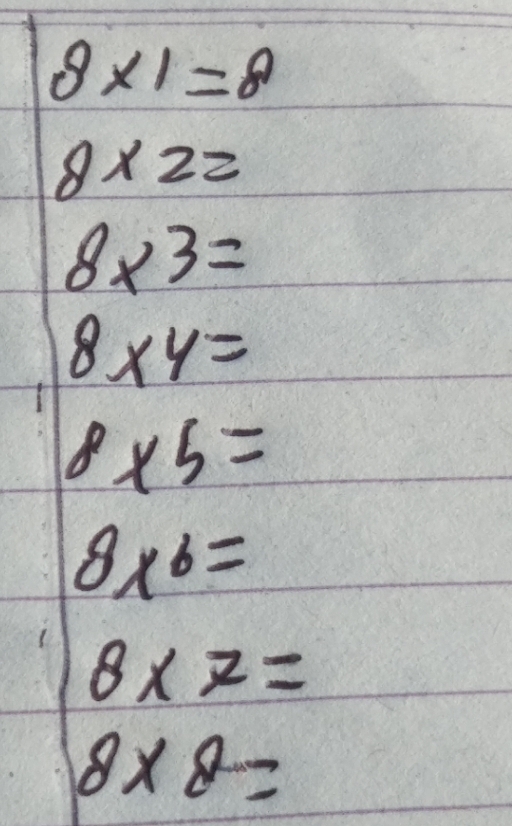 8×1=8
8×2=
8×3=
8×4=
8×5=
8×6=
8×7=
8×8=